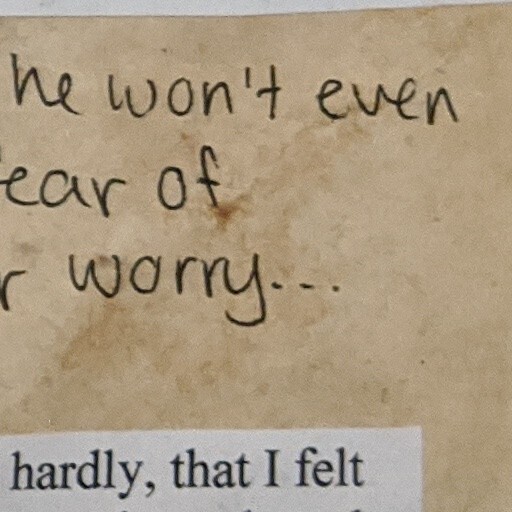 he won't even
ear of
r worry...
hardly, that I felt